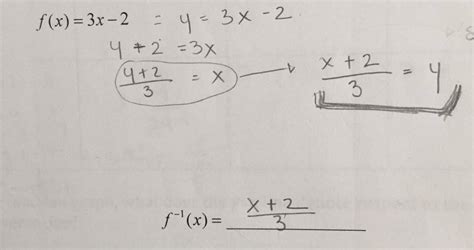 f(x) = 3x − 2 = y = 3x − 2
y + 2 = 3x
(y + 2)/3 = x → (x + 2)/3 = y
f⁻¹(x) = (x + 2)/3